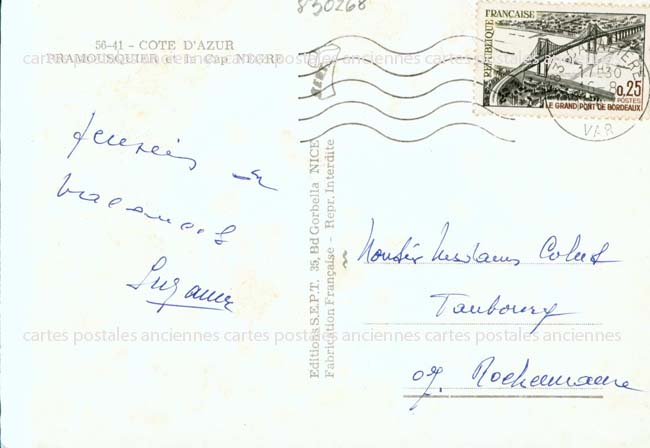 830268
56-41 - COTE D'AZUR
PRAMOUSQUIER et le Cap NEGRE
REPUBLIQUE FRANCAISE
0,25
POSTES
LE GRAND PONT DE BORDEAUX
17 30
VAR
cartes postales anciennes cartes postales anciennes cartes postales anciennes
vacances
Suzanne
Editions S.E.P.T. 35, Bd Gorbella NICE
Fabrication Française - Repr. Interdite
Monsieur Mesdames
Faubourg
07. Rochemaure
cartes postales anciennes cartes postales anciennes cartes postales anciennes